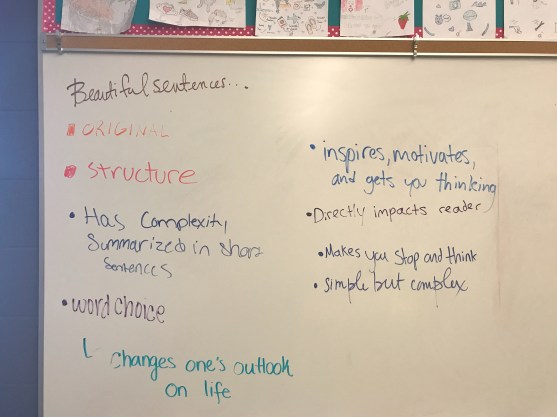 Beautiful sentences...
ORIGINAL
structure
• Has Complexity,
Summarized in short
sentences
• word choice
changes one's outlook
on life
• inspires, motivates,
and gets you thinking
• Directly impacts reader
• Makes you stop and think
• simple but complex